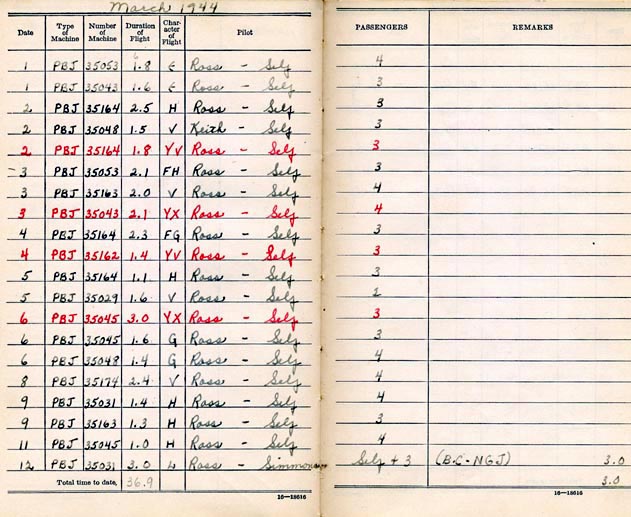 March 1944
Date Type of Machine Number of Machine Duration of Flight Character of Flight Pilot PASSENGERS REMARKS
1 PBJ 35053 1.8 E Ross - Self 4
1 PBJ 35043 1.6 E Ross - Self 3
2 PBJ 35164 2.5 H Ross - Self 3
2 PBJ 35048 1.5 V Keith - Self 3
2 PBJ 35164 1.8 YV Ross - Self 3
3 PBJ 35053 2.1 FH Ross - Self 3
3 PBJ 35163 2.0 V Ross - Self 4
3 PBJ 35043 2.1 YX Ross - Self 4
4 PBJ 35164 2.3 FG Ross - Self 3
4 PBJ 35162 1.4 YV Ross - Self 3
5 PBJ 35164 1.1 H Ross - Self 3
5 PBJ 35029 1.6 V Ross - Self 2
6 PBJ 35045 3.0 YX Ross - Self 3
6 PBJ 35045 1.6 G Ross - Self 3
6 PBJ 35048 1.4 G Ross - Self 4
8 PBJ 35174 2.4 V Ross - Self 4
9 PBJ 35031 1.4 H Ross - Self 4
9 PBJ 35163 1.3 H Ross - Self 3
11 PBJ 35045 1.0 H Ross - Self 4
12 PBJ 35031 3.0 Ross - Simmons Self + 3 (BC-NGJ) 3.0
Total time to date, 36.9 3.0
16—18616 16—18616